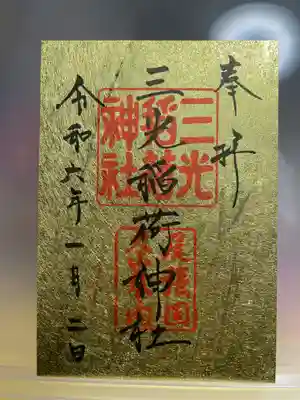 奉拝
三光稲荷神社
令和六年一月二日
三光
稲荷
神社
尾張国